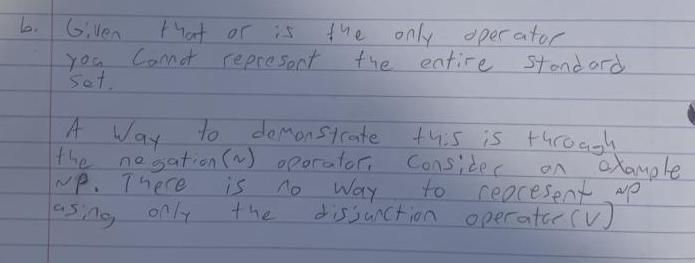 b. Given that or is the only operator
you cannot represent the entire standard
set.
A way to demonstrate this is through
the negation (~) operator. Consider an example
~P. There is no way to represent ~P
using only the disjunction operator (V)